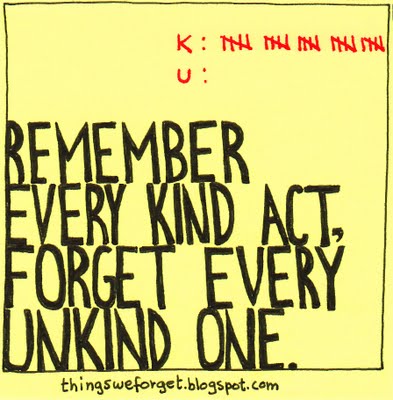 K: 卌 卌 卌 卌 卌
U:
REMEMBER
EVERY KIND ACT,
FORGET EVERY
UNKIND ONE.
thingsweforget.blogspot.com